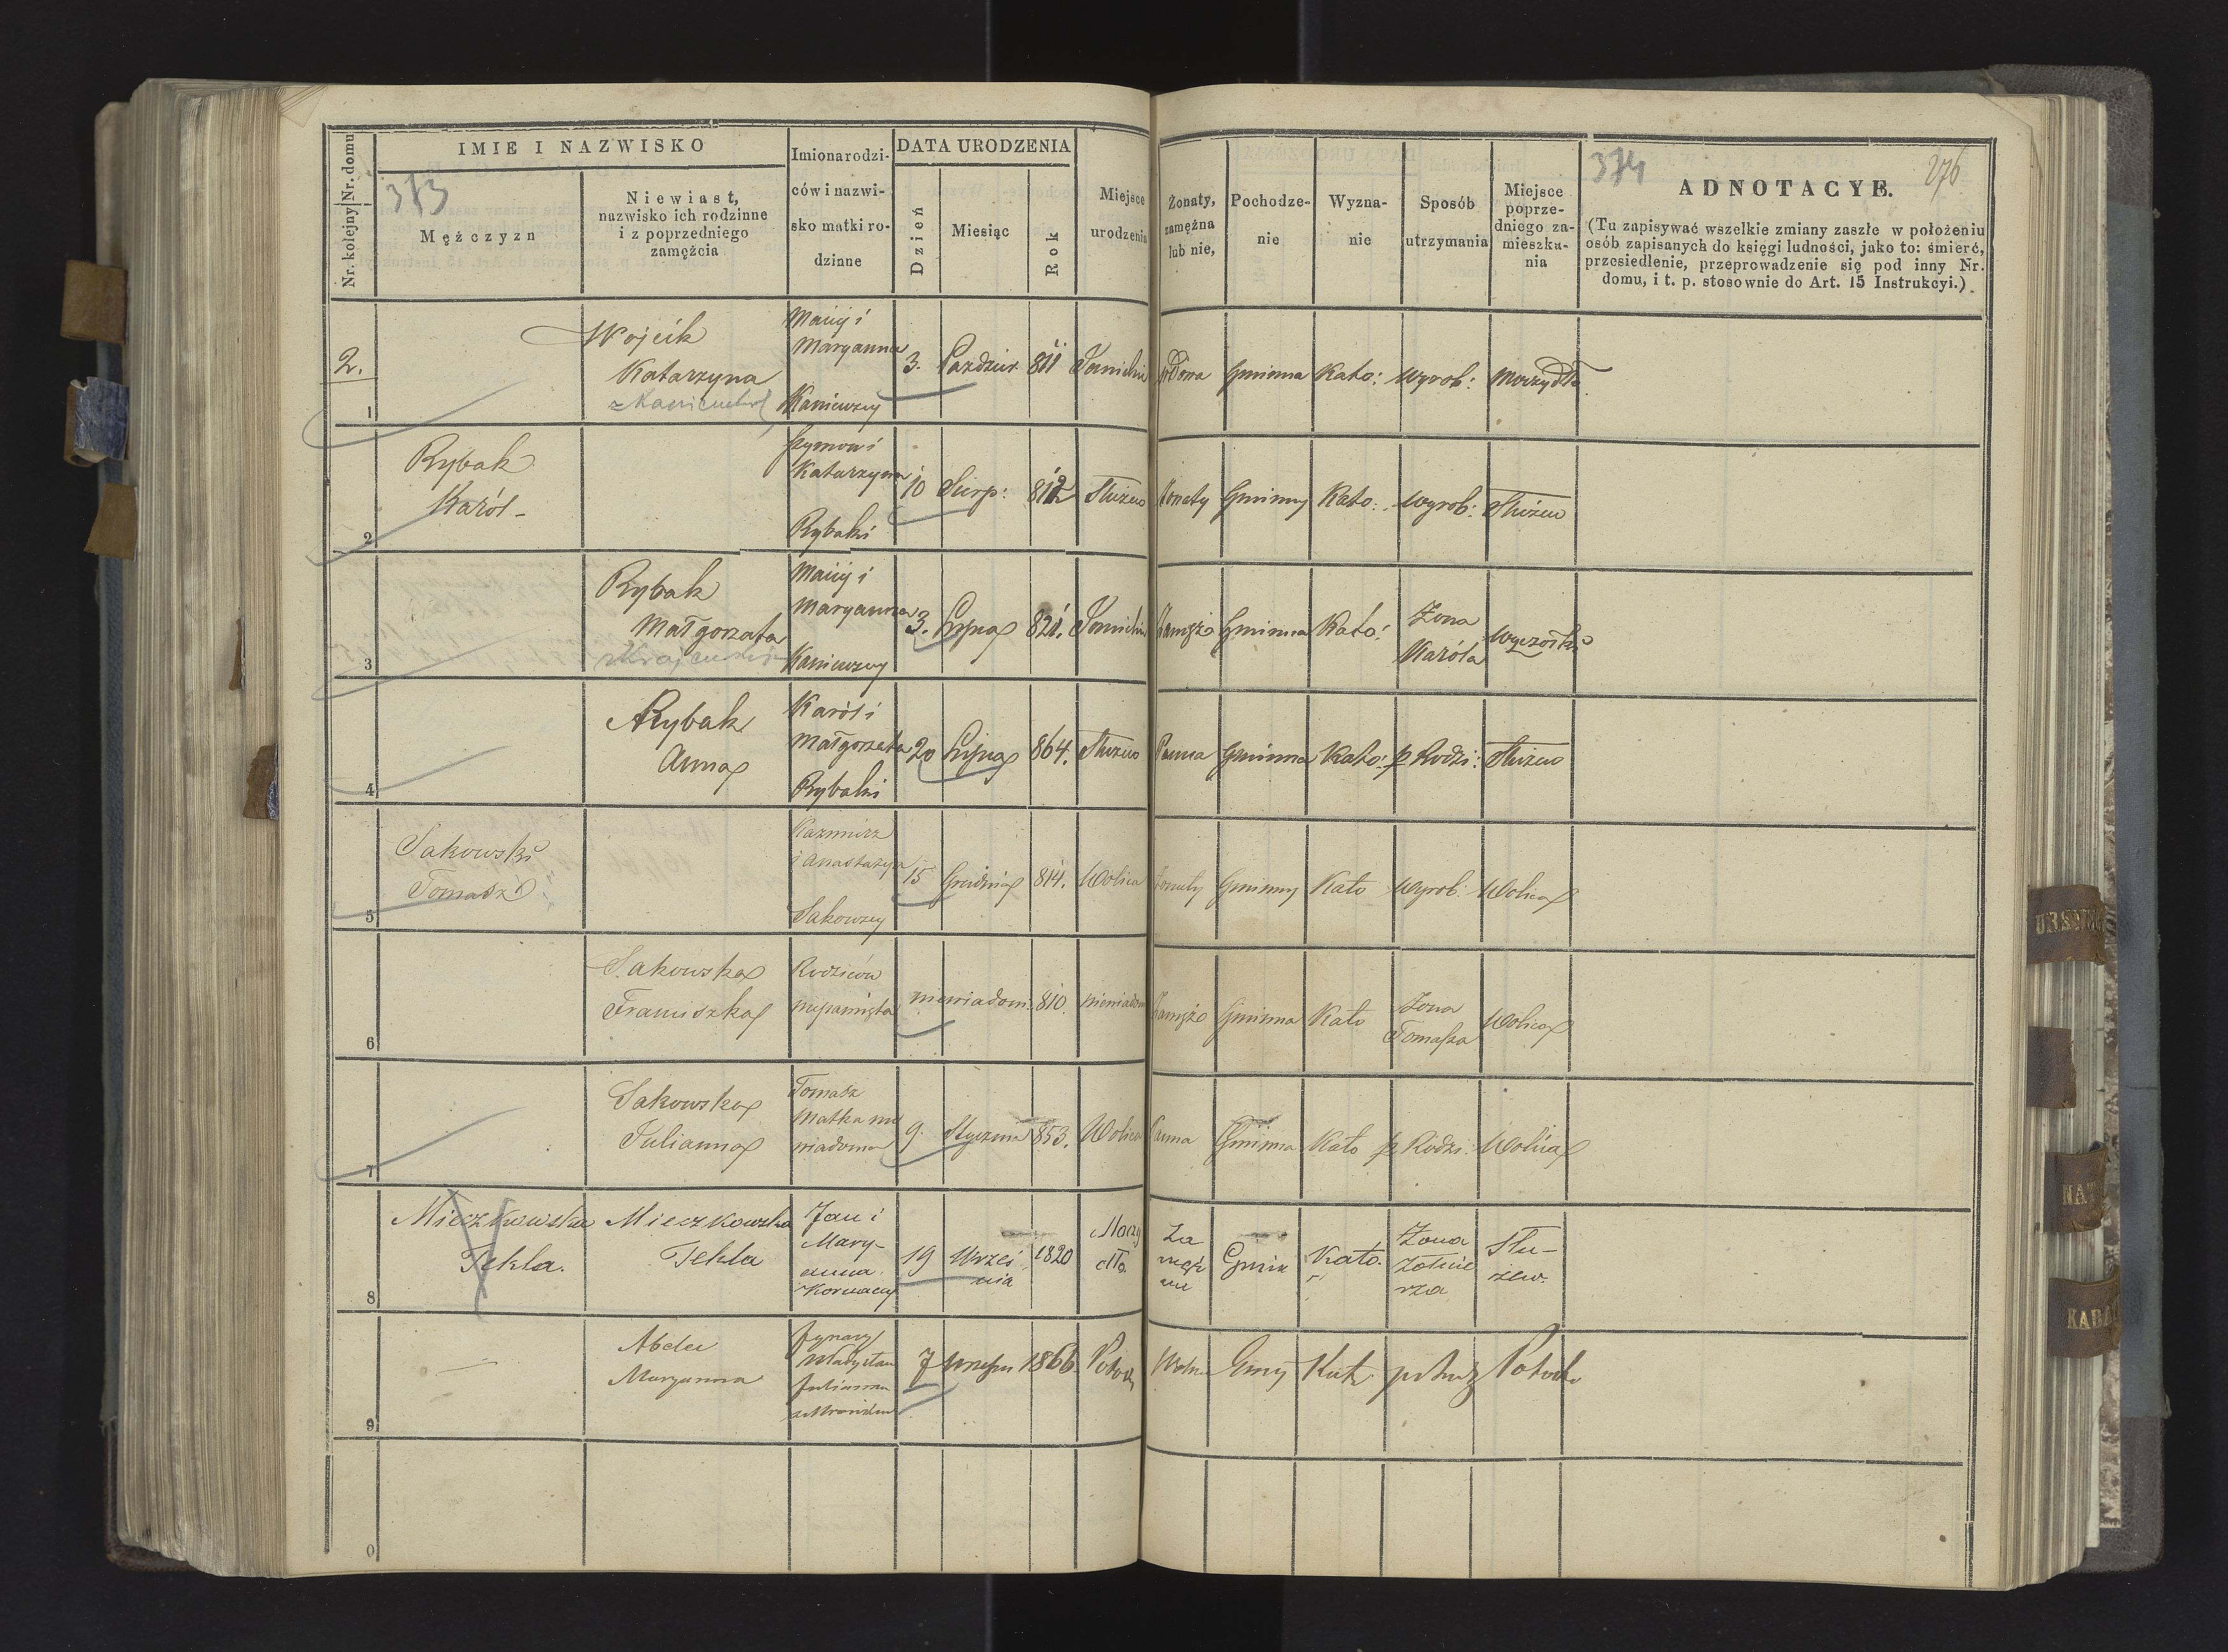 Nr. kolejny Nr. domu
IMIE I NAZWISKO
373
Mężczyzn
Niewiast,
nazwisko ich rodzinne
i z poprzedniego
zamężcia
Imiona rodzi-
ców i nazwi-
sko matki ro-
dzinne
DATA URODZENIA
Dzień
Miesiąc
Rok
Miejsce
urodzenia
Żonaty,
zamężna
lub nie,
Pochodze-
nie
Wyzna-
nie
Sposób
utrzymania
Miejsce
poprze-
dniego za-
mieszka-
nia
374
ADNOTACYE.
276
(Tu zapisywać wszelkie zmiany zaszłe w położeniu
osób zapisanych do księgi ludności, jako to: śmierć,
przesiedlenie, przeprowadzenie się pod inny Nr.
domu, i t. p. stosownie do Art. 15 Instrukcyi.)
2.
1
Wojcik
Katarzyna
Maryanna
3. 811
Wdowa Gminna Kato: Wyrob:
2
Rybak
Karól
Szymon i
Katarzyna
Rybaki
10 Sierp: 812 Służew
Żonaty Gminny Kato: Wyrob: Służew
3
Rybak
Małgorzata
Maryanna
3. Lipca 821.
Zamęż Gminna Kato:
Żona
Karóla
4
Rybak
Anna
Karól i
Małgorzata
Rybaki
20 Lipca 864. Służew
Panna Gminna Kato: p Rodzi: Służew
5
Sakowski
Tomasz
Kazmirz
i Anastazya
Sakowscy
15 Grudnia 814. Wolica
Żonaty Gminny Kato Wyrob: Wolica
6
Sakowska
Franciszka
Rodziców
niepamięta
niewiadom: 810. niewiadom
Zamęż Gminna Kato
Żona
Tomasza
Wolica
7
Sakowska
Julianna
Tomasz
Matka nie
wiadoma
9. Stycznia 853. Wolica
Panna Gminna Kato p Rodzi: Wolica
8
Mieczkowska
Tekla.
Mieczkowska
Tekla
Jan i
Mary-
anna
19 Wrześ
nia
1820
Za
męż
na
Gmin
Kato.
Żona
Żołnie
rza
Słu-
żew.
9
Maryanna
7 1866
Kat